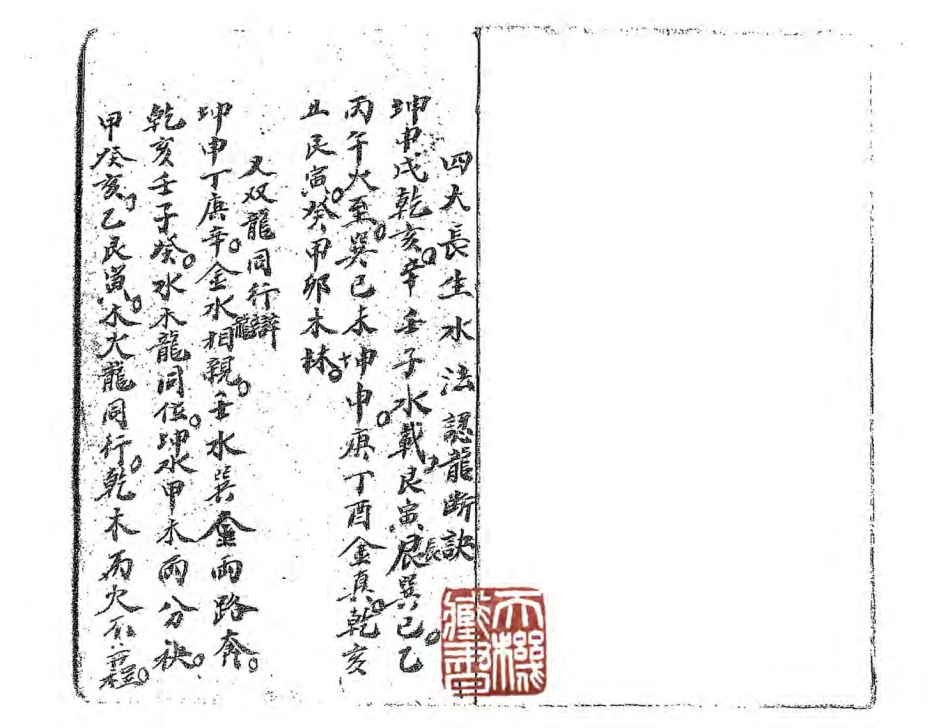 四大長生水法認龍断訣
坤申戌乾亥。辛壬子水載。艮寅辰巽巳。乙
丙午火至。巽巳未坤申。庚丁酉金真。乾亥
丑艮寅。癸甲卯木林。
又双龍同行辯
坤申丁庚辛。金水相親。壬水巽金兩路奔。
乾亥壬子癸。水木龍同位。坤水甲木兩分袂。
甲癸亥。乙艮寅。木火龍同行。乾木丙火
天機
藏書